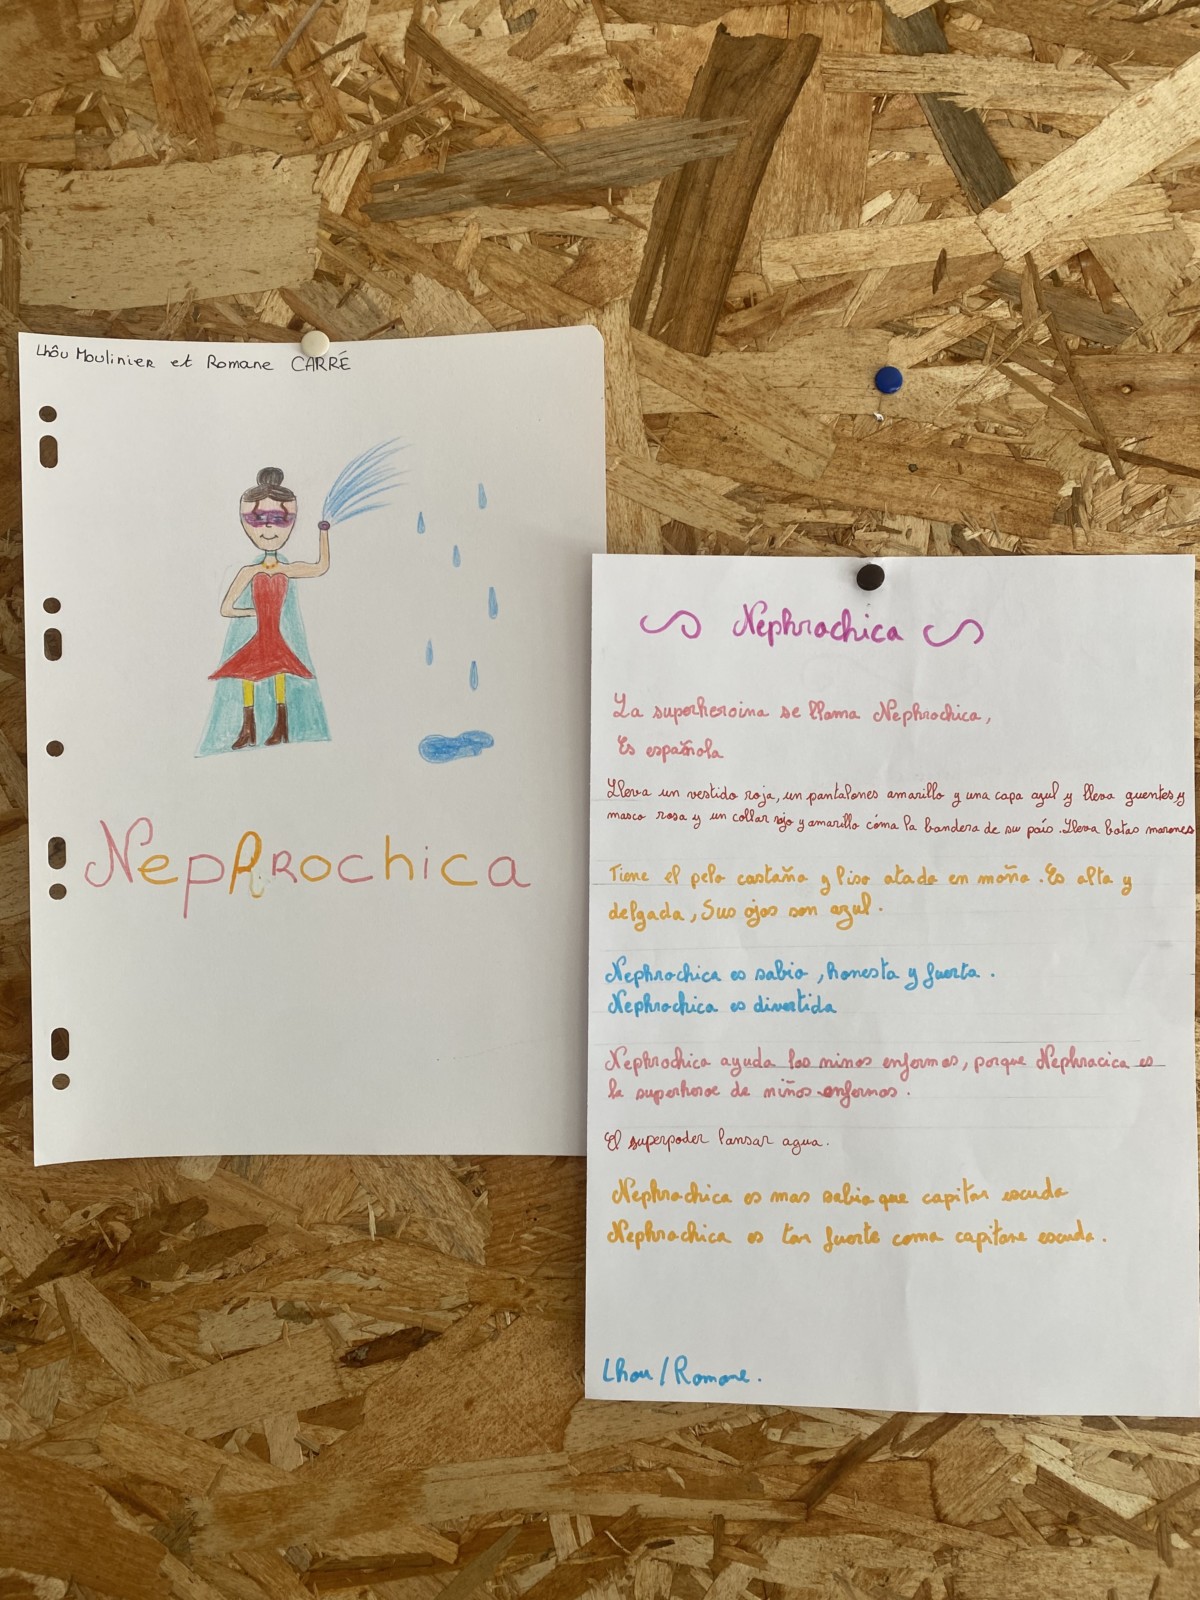 Lhôu Moulinier et Romane CARRÉ
Nephrochica
Nephrochica
La superheroina se llama Nephrochica,
Es española
Lleva un vestido roja, un pantalones amarillo y una capa azul y lleva guentes y
masco rosa y un collar rojo y amarillo cómo la bandera de su país. Lleva botas marones
Tiene el pelo castaña y liso atado en moña. Es alta y
delgada, Sus ojos son azul.
Nephrochica es sabio, honesta y fuerta.
Nephrochica es divertida
Nephrochica ayuda los ninos enfermos, porque Nephracica es
la superheroe de niños enfermos.
El superpoder lansar agua.
Nephrochica es mas sabia que capitan escuda
Nephrochica es tan fuerte como capitane escuda.
Lhou / Romane.